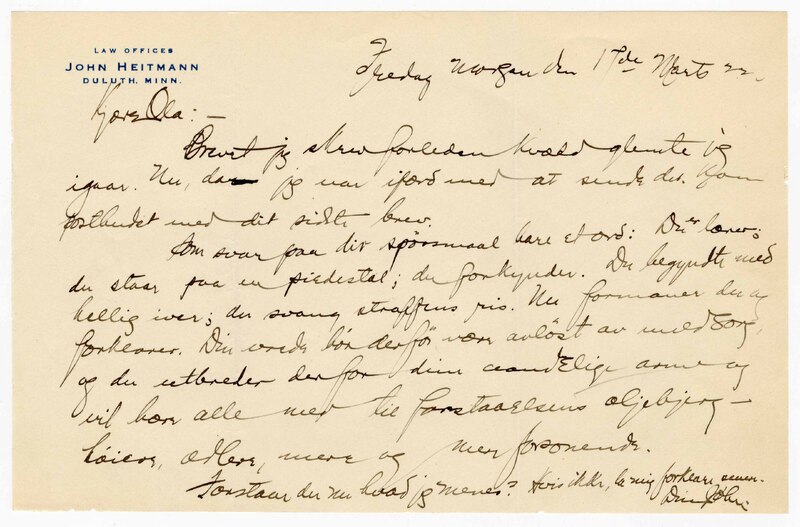 LAW OFFICES
JOHN HEITMANN
DULUTH, MINN.
Fredag Morgen den 17de Marts 22.
Kjære Ola: —
Brevet jeg skrev forleden kvæld glemte jeg
igaar. Nu, da jeg var ifærd med at sende det kom
postbudet med dit sidste brev.
Om svar paa dit spörsmaal bare et ord: Du er lærer;
du staar paa en piedestal; du forkynder. Du begyndte med
hellig iver; du svang straffens ris. Nu formaner du og
forklarer. Din vrede bör derför være avlöst av mild sorg,
og du utbreder derfor dine aandelige arme og
vil bære alle med til forstaaelsens oljebjerg —
höiere, ædlere, mere og mere forsonende.
Forstaar du nu hvad jeg mener? Hvis ikke, la mig forklare senere.
Din John